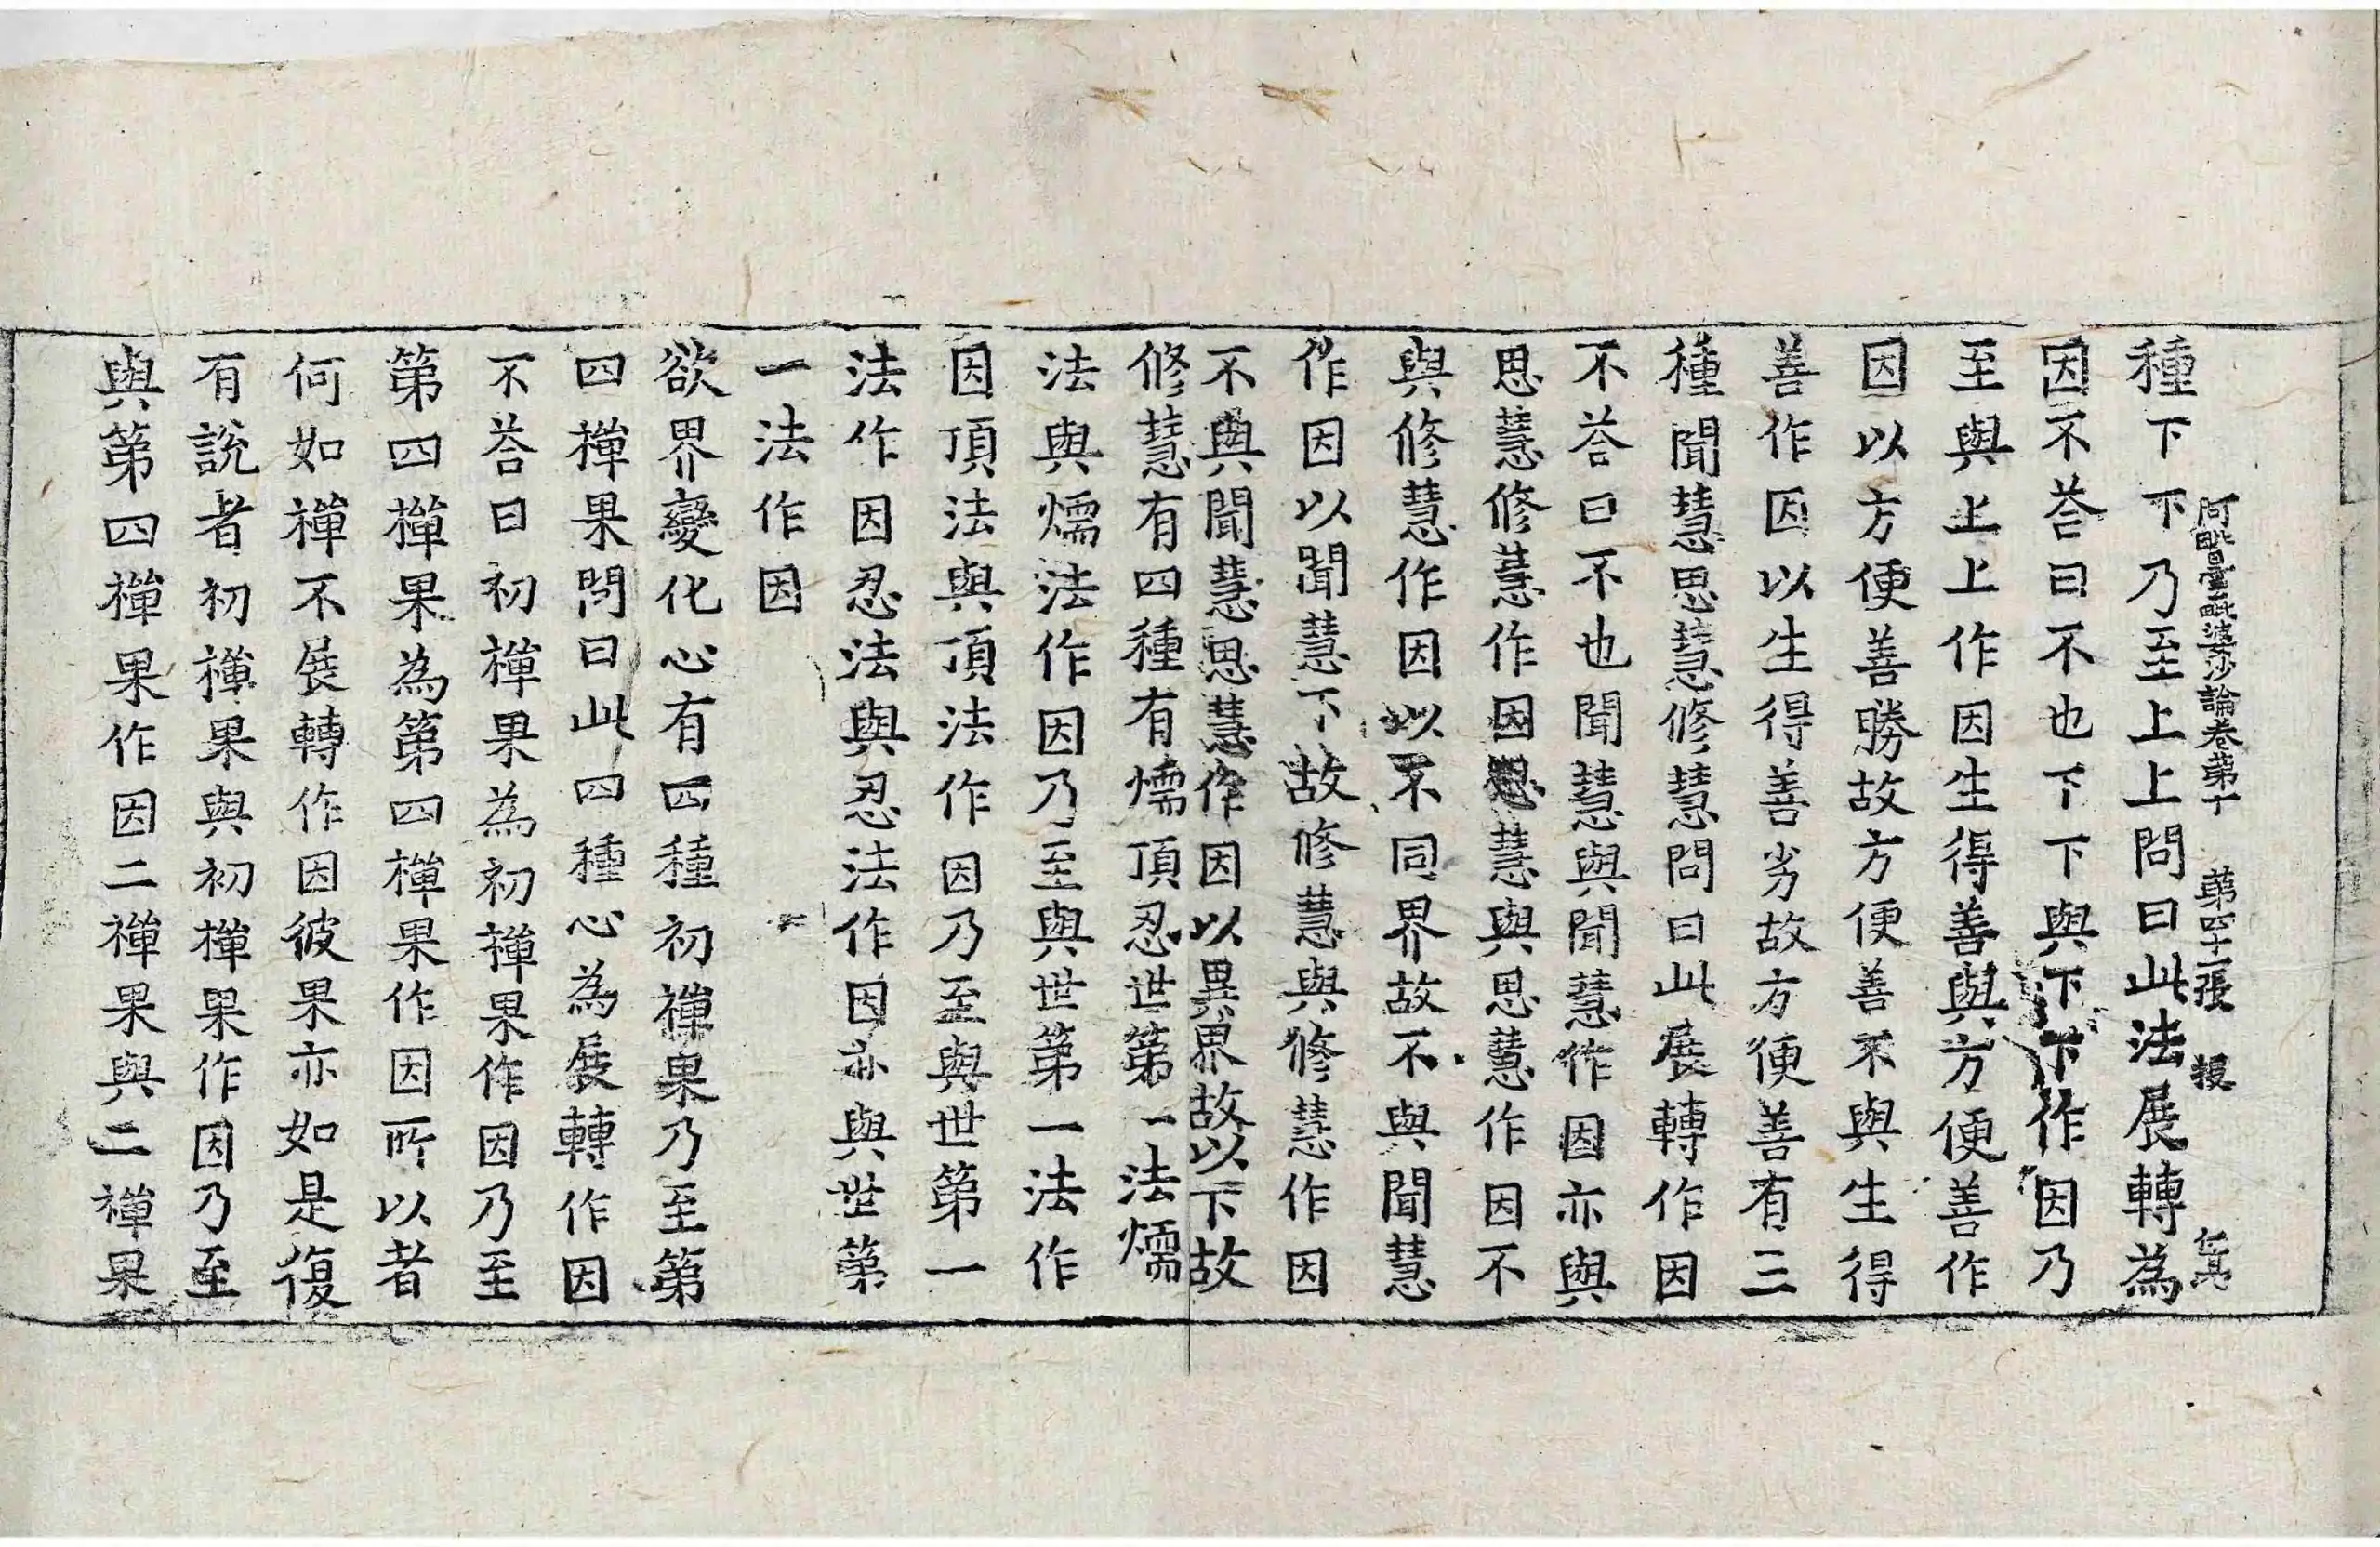 種下下乃至上上問曰此法展轉為
阿毗曇毗婆沙論卷第十 第四十一張 投
因不荅曰不也下下與下下作因乃
至與上上作因生得善與方便善作
因以方便善勝故方便善不與生得
善作因以生得善劣故方便善有三
種聞慧思慧修慧問曰此展轉作因
不荅曰不也聞慧與聞慧作因亦與
思慧修慧作因思慧與思慧作因不
與修慧作因以不同界故不與聞慧
作因以聞慧下故修慧與修慧作因
不與聞慧思慧作因以異界故以下故
修慧有四種有燸頂忍世第一法燸
法與燸法作因乃至與世第一法作
因頂法與頂法作因乃至與世第一
法作因忍法與忍法作因亦與世第
一法作因
欲界變化心有四種初禪果乃至第
四禪果問曰此四種心為展轉作因
不荅曰初禪果為初禪果作因乃至
第四禪果為第四禪果作因所以者
何如禪不展轉作因彼果亦如是復
有說者初禪果與初禪果作因乃至
與第四禪果作因二禪果與二禪果